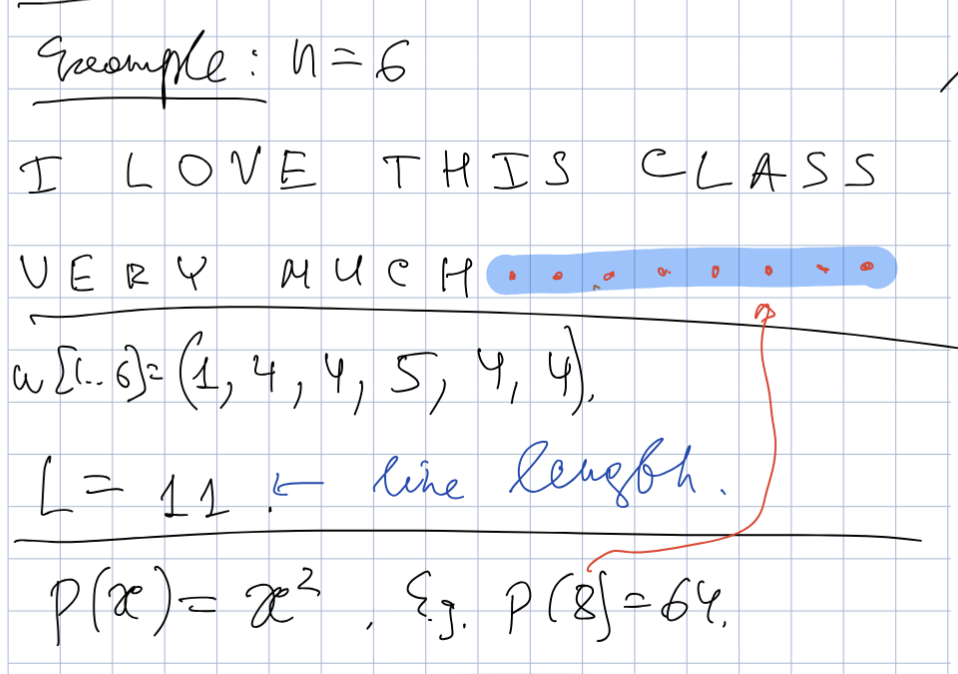 Example: n=6
I LOVE THIS CLASS
VERY MUCH
w[1..6]=(1, 4, 4, 5, 4, 4).
L = 11. ← line length.
P(x) = x², E.g. P(8)=64.